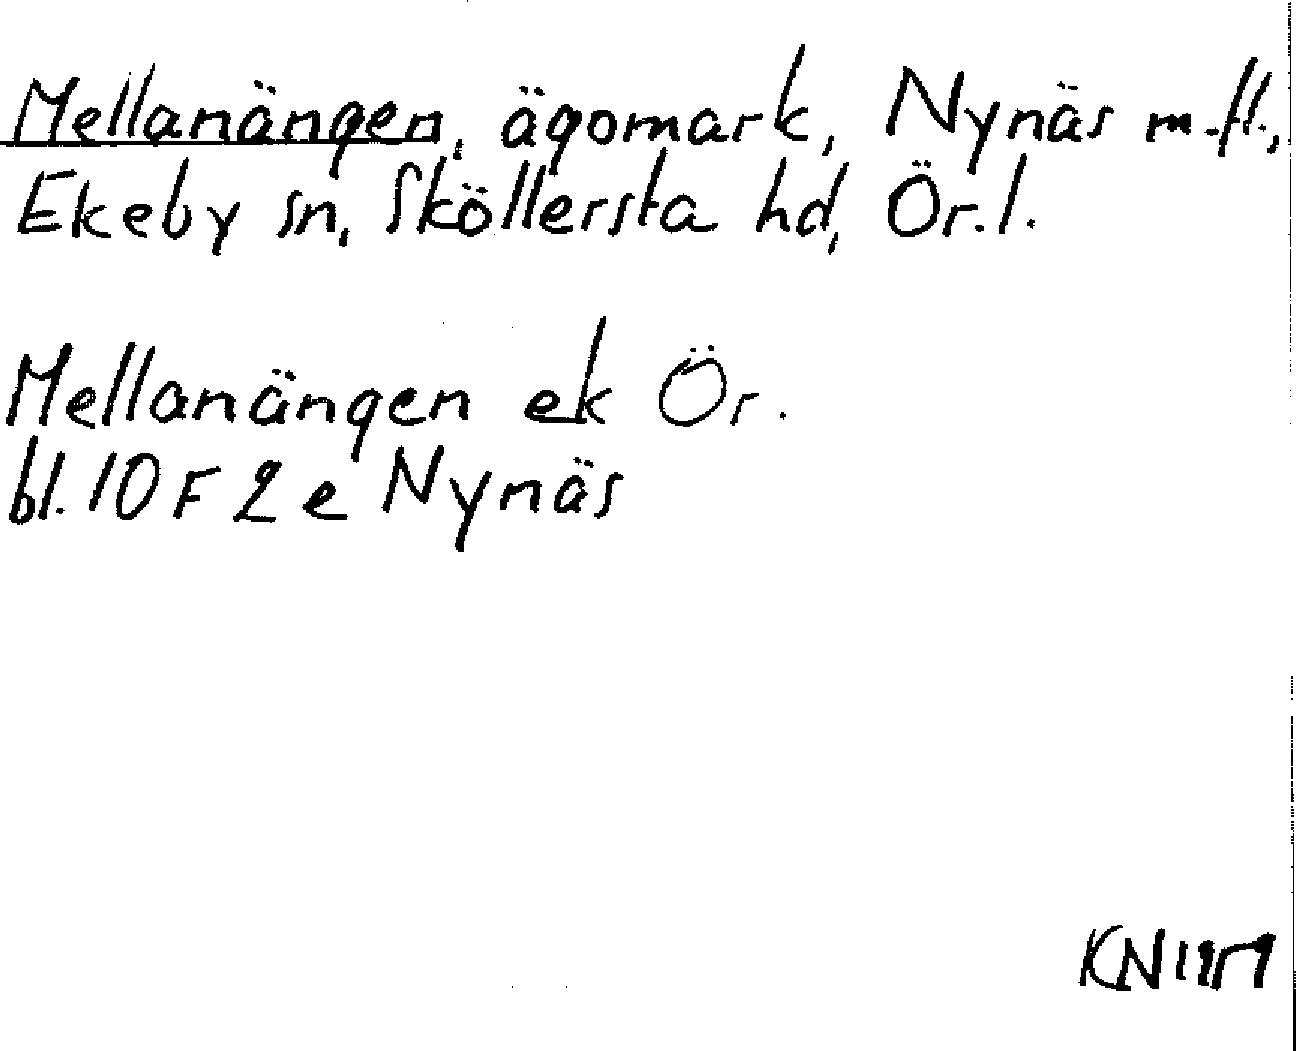 Mellanängen, ägomark, Nynäs m.fl.,
Ekeby sn, Sköllersta hd, Ör.l.
Mellanängen ek Ör.
bl. 10 F 2 e Nynäs
KN